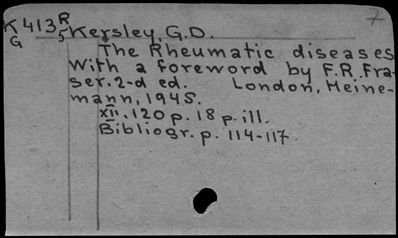 7
K413 R
G 5 Kersley, G.D.
The Rheumatic diseases
With a foreword by F.R. Fra-
ser. 2-d ed. London, Heine-
mann, 1945.
XII, 120 p. 18 p. ill.
Bibliogr. p. 114-117.